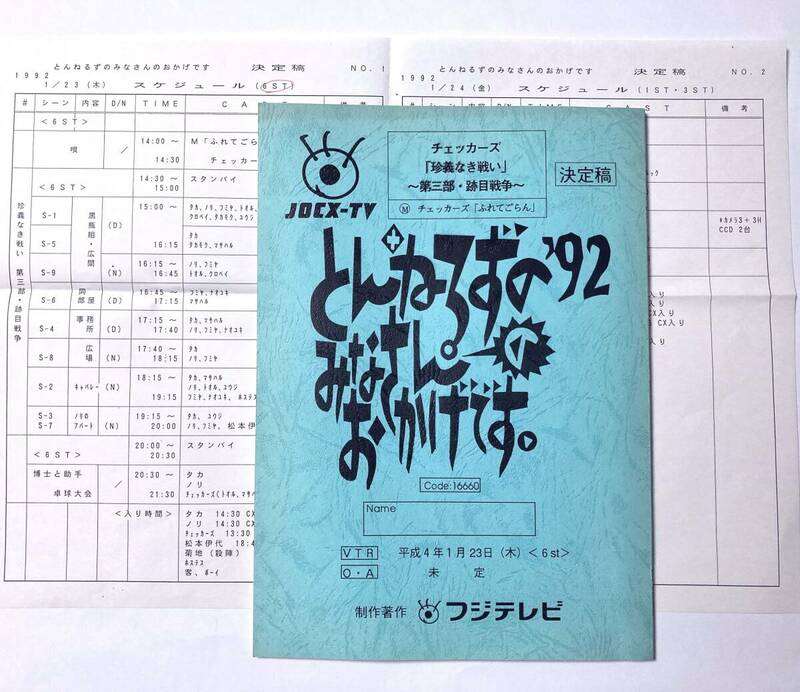 とんねるずのみなさんのおかげです 決定稿 NO. 1
1992
1/23(木) スケジュール(6ST)
# シーン 内容 D/N TIME CA
<6ST>
唄 / 14:00〜 M「ふれてごらん
14:30 チェッカー
<6ST> 14:30〜 スタンバイ
15:00
珍義なき戦い 第三部・跡目戦争
S-1 黒瓶組・広間 (D) 15:00〜 タカ、ノリ、フミヤ、トオル、
クロベイ、タカモク、ユウジ
S-5 16:15 タカ
タカモク、マサハル
S-9 (N) 16:15〜 ノリ、フミヤ
16:45 トオル、クロベイ
S-6 同部屋 (D) 16:45〜 フミヤ、ナオユキ
17:15 マサハル
S-4 事務所 (D) 17:15〜 タカ、マサハル
17:40 ノリ、フミヤ、ナオユキ
S-8 広場 (N) 17:40〜 タカ
18:15 ノリ、フミヤ
S-2 キャバレー (N) 18:15〜 タカ、マサハル
ノリ、トオル、ユウジ
19:15 フミヤ、ナオユキ、ホステス
S-3 ノリの 19:15〜 タカ、ユウジ
S-7 アパート (N) 20:00 ノリ、フミヤ、松本伊代
<6ST> 20:00〜 スタンバイ
20:30
博士と助手 / 20:30〜 タカ
ノリ
卓球大会 21:30 チェッカーズ(トオル、マサハ
<入り時間> タカ 14:30 CX
ノリ 14:30 CX
チェッカーズ 13:30
松本伊代 18:4
菊地(殺陣)
ホステス
客、ボーイ
とんねるずのみなさんのおかげです 決定稿 NO. 2
1992
1/24(金) スケジュール(1ST・3ST)
# シーン 内容 D/N TIME CAST 備考
*カメラ3+3H
CCD 2台
入り
CX入り
入り
JOCX-TV
チェッカーズ
「珍義なき戦い」
〜第三部・跡目戦争〜
Ⓜ チェッカーズ「ふれてごらん」
決定稿
とんねるずの'92
みなさんの
おかげです。
Code:16660
Name
VTR 平成4年1月23日(木)<6st>
O・A 未定
制作著作 フジテレビ